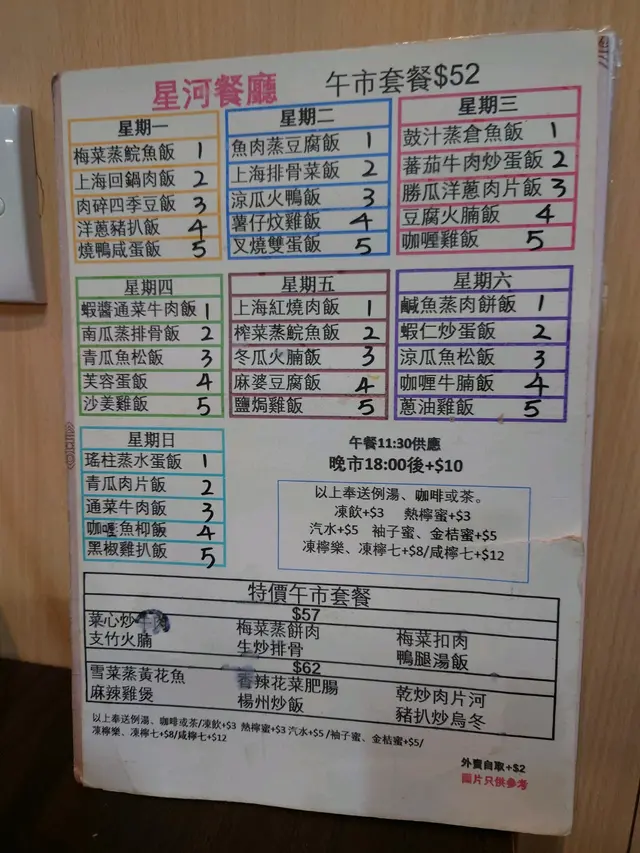 星河餐廳 午市套餐$52
星期一
梅菜蒸鯇魚飯 1
上海回鍋肉飯 2
肉碎四季豆飯 3
洋蔥豬扒飯 4
燒鴨咸蛋飯 5
星期二
魚肉蒸豆腐飯 1
上海排骨菜飯 2
涼瓜火鴨飯 3
薯仔炆雞飯 4
叉燒雙蛋飯 5
星期三
鼓汁蒸倉魚飯 1
蕃茄牛肉炒蛋飯 2
勝瓜洋蔥肉片飯 3
豆腐火腩飯 4
咖喱雞飯 5
星期四
蝦醬通菜牛肉飯 1
南瓜蒸排骨飯 2
青瓜魚松飯 3
芙蓉蛋飯 4
沙姜雞飯 5
星期五
上海紅燒肉飯 1
榨菜蒸鯇魚飯 2
冬瓜火腩飯 3
麻婆豆腐飯 4
鹽焗雞飯 5
星期六
鹹魚蒸肉餅飯 1
蝦仁炒蛋飯 2
涼瓜魚松飯 3
咖喱牛腩飯 4
蔥油雞飯 5
星期日
瑤柱蒸水蛋飯 1
青瓜肉片飯 2
通菜牛肉飯 3
咖喱魚柳飯 4
黑椒雞扒飯 5
午餐11:30供應
晚市18:00後+$10
以上奉送例湯、咖啡或茶。
凍飲+$3 熱檸蜜+$3
汽水+$5 袖子蜜、金桔蜜+$5
凍檸樂、凍檸七+$8/咸檸七+$12
特價午市套餐
$57
菜心炒 梅菜蒸餅肉 梅菜扣肉
支竹火腩 生炒排骨 鴨腿湯飯
$62
雪菜蒸黃花魚 辣花菜肥腸 乾炒肉片河
麻辣雞煲 楊州炒飯 豬扒炒烏冬
以上奉送例湯、咖啡或茶/凍飲+$3 熱檸蜜+$3 汽水+$5 /袖子蜜、金桔蜜+$5/
凍檸樂、凍檸七+$8/咸檸七+$12
外賣自取+$2
圖片只供參考